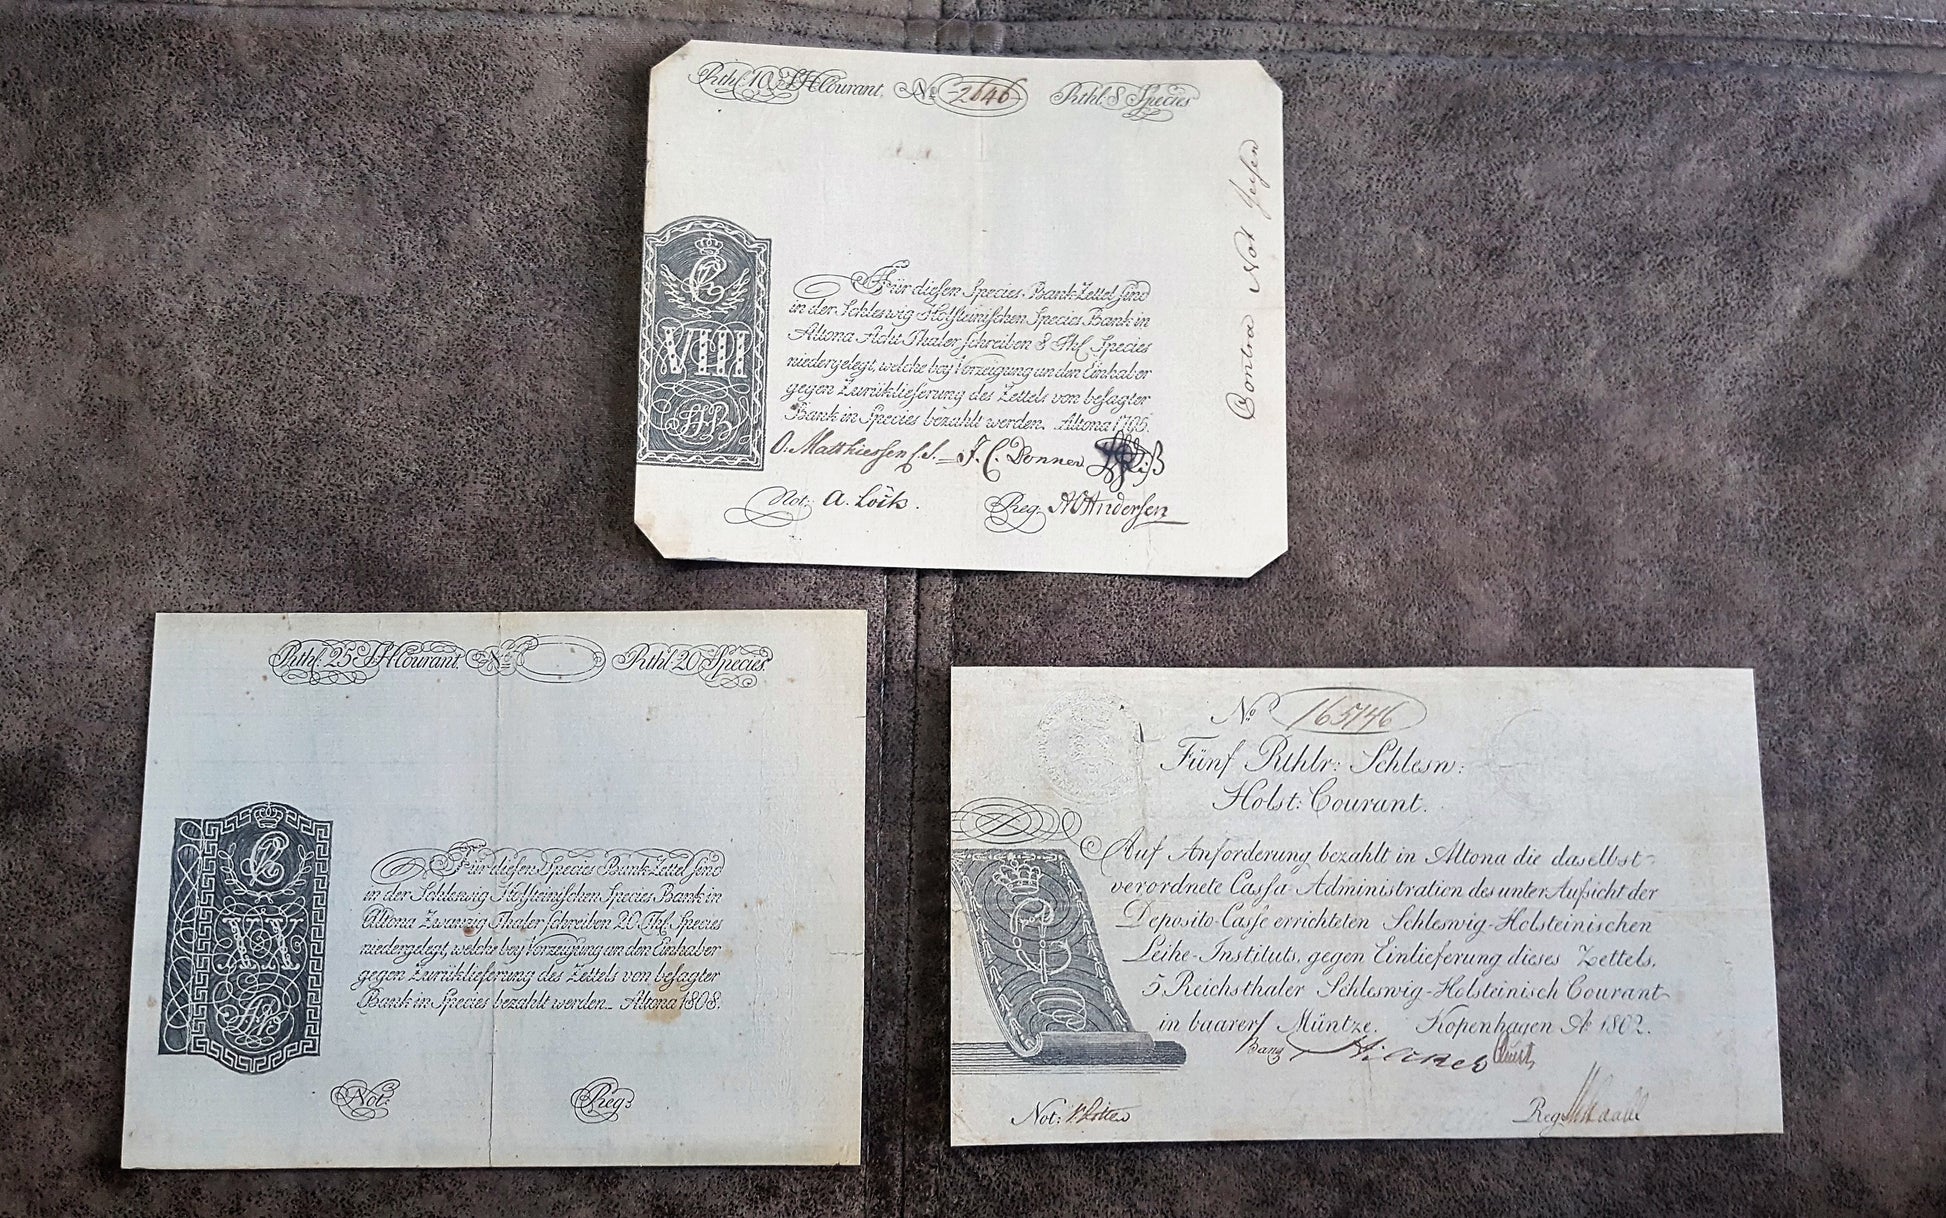 Rthl. 10 SH Courant. No. 2646 Rthl. 8 Species
Contra Not
VIII
SHB
Für diesen Species-Bank-Zettel sind
in der Schleswig Holsteinischen Species Bank in
Altona Acht Thaler schreiben 8 Thl. Species
niedergelegt, welche bey Vorzeigung an den Einhaber
gegen Zurüklieferung des Zettels von besagter
Bank in Species bezahlt werden. Altona 1795.
O: Matthiessen J. C. Donner
Not: A. Löck.
Reg: Andersen
Rthl. 25 SH Courant. No. Rthl. 20 Species
XX
SHB
Für diesen Species Bank-Zettel sind
in der Schleswig Holsteinischen Species Bank in
Altona Zwanzig Thaler schreiben 20 Thl. Species
niedergelegt, welche bey Vorzeigung an den Einhaber
gegen Zurüklieferung des Zettels von besagter
Bank in Species bezahlt werden. Altona 1808.
Not:
Reg:
No. 165146
Fünf Rthlr: Schlesw:
Holst: Courant.
Auf Anforderung bezahlt in Altona die daselbst
verordnete Cassa-Administration des unter Aufsicht der
Deposito-Casse errichteten Schleswig-Holsteinischen
Leihe-Instituts, gegen Einlieferung dieses Zettels,
5 Reichsthaler Schleswig-Holsteinisch Courant
in baarer Müntze. Kopenhagen Ao 1802.
Not:
Reg: